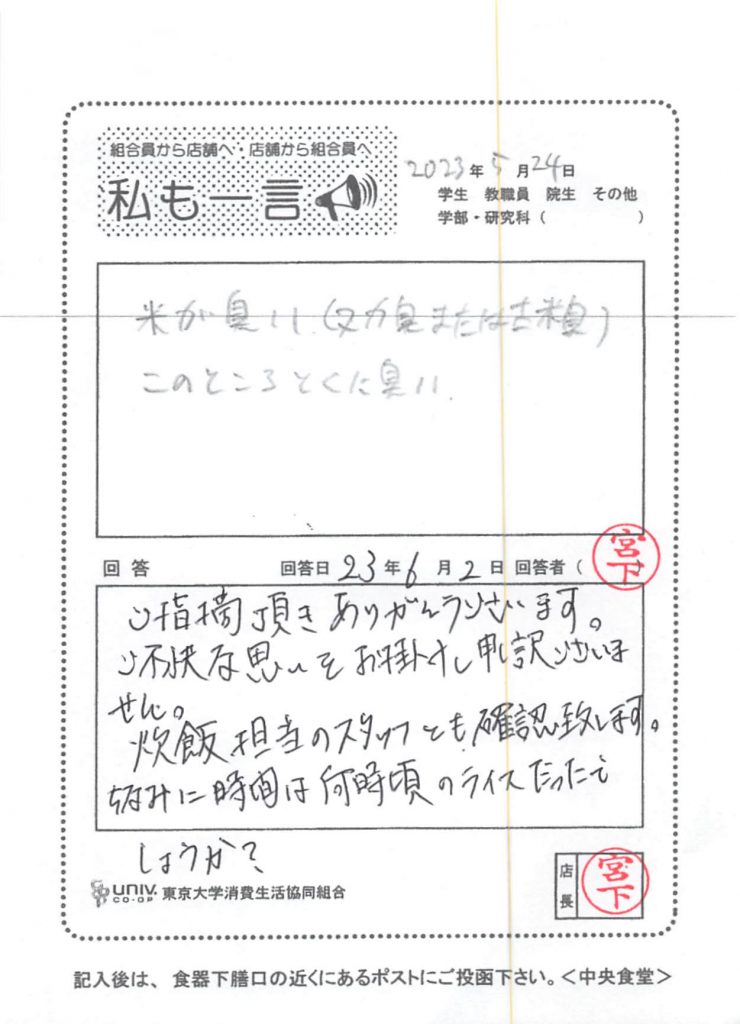 組合員から店舗へ・店舗から組合員へ
私も一言
2023年5月24日
学生 教職員 院生 その他
学部・研究科（　　　）
米が臭い.(ヌカ臭または古米臭)
このところとくに臭い.
回答 回答日 23年6月2日 回答者（宮下）
ご指摘頂きありがとうございます。
ご不快な思いをお掛けし申し訳ございま
せん。
炊飯担当のスタッフとも確認致します。
ちなみに時間は何時頃のライスだったで
しょうか？
店長 宮下
UNIV. CO-OP 東京大学消費生活協同組合
記入後は、食器下膳口の近くにあるポストにご投函下さい。＜中央食堂＞